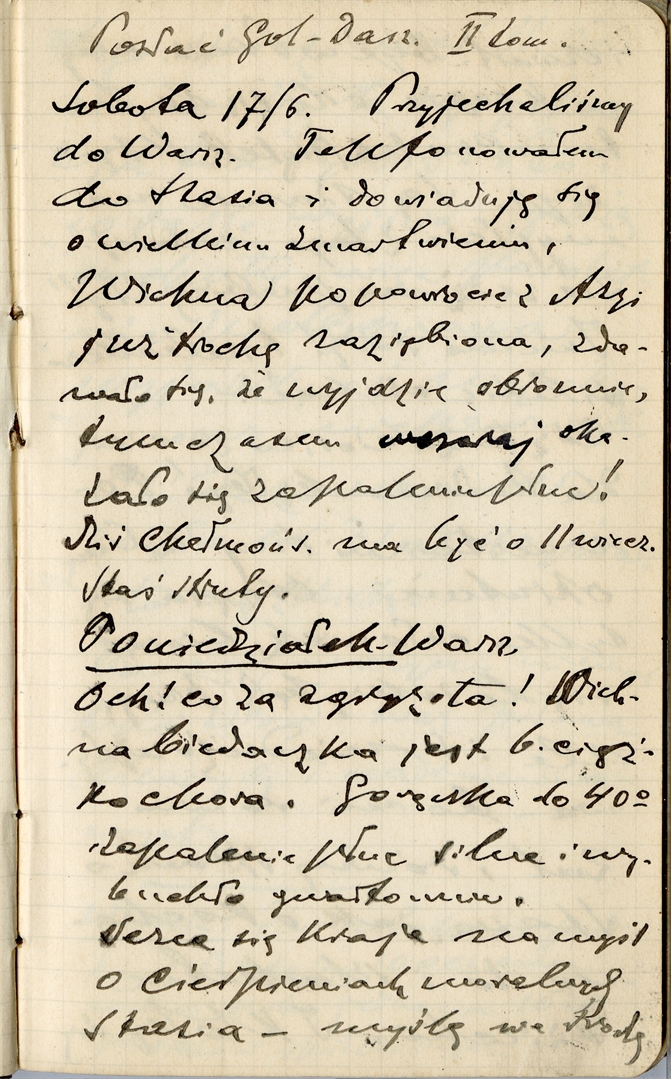 Posłać Gol-Darz. II tom.
Sobota 17/6. Przyjechaliśmy
do Warsz. Telefonowałem
do Stasia i dowiaduję się
o wielkim zmartwieniu,
Wichna po powrocie z Azji
już trochę zaziębiona, zda-
wało się, że wyjdzie obronnie,
tymczasem wczoraj oka-
zało się zapalenie płuc!
Dziś Chełmońs. ma być o 11 wiecz.
Staś struty.
Poniedziałek Warsz
Och! co za zgryzota! Wich-
na biedaczka jest b. cięż-
ko chora. Gorączka do 40º
zapalenie płuc silne i wy-
buchło gwałtownie.
Serce się kraje na myśl
o cierpieniach moralnych
Stasia – myślę we środę